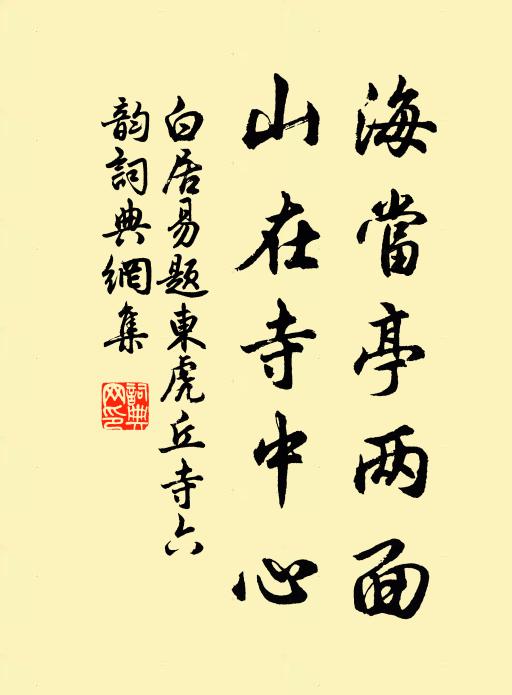 海當亭两面
山在寺中心
白居易题東虎丘寺六
韵詞典網集
詞典
网印